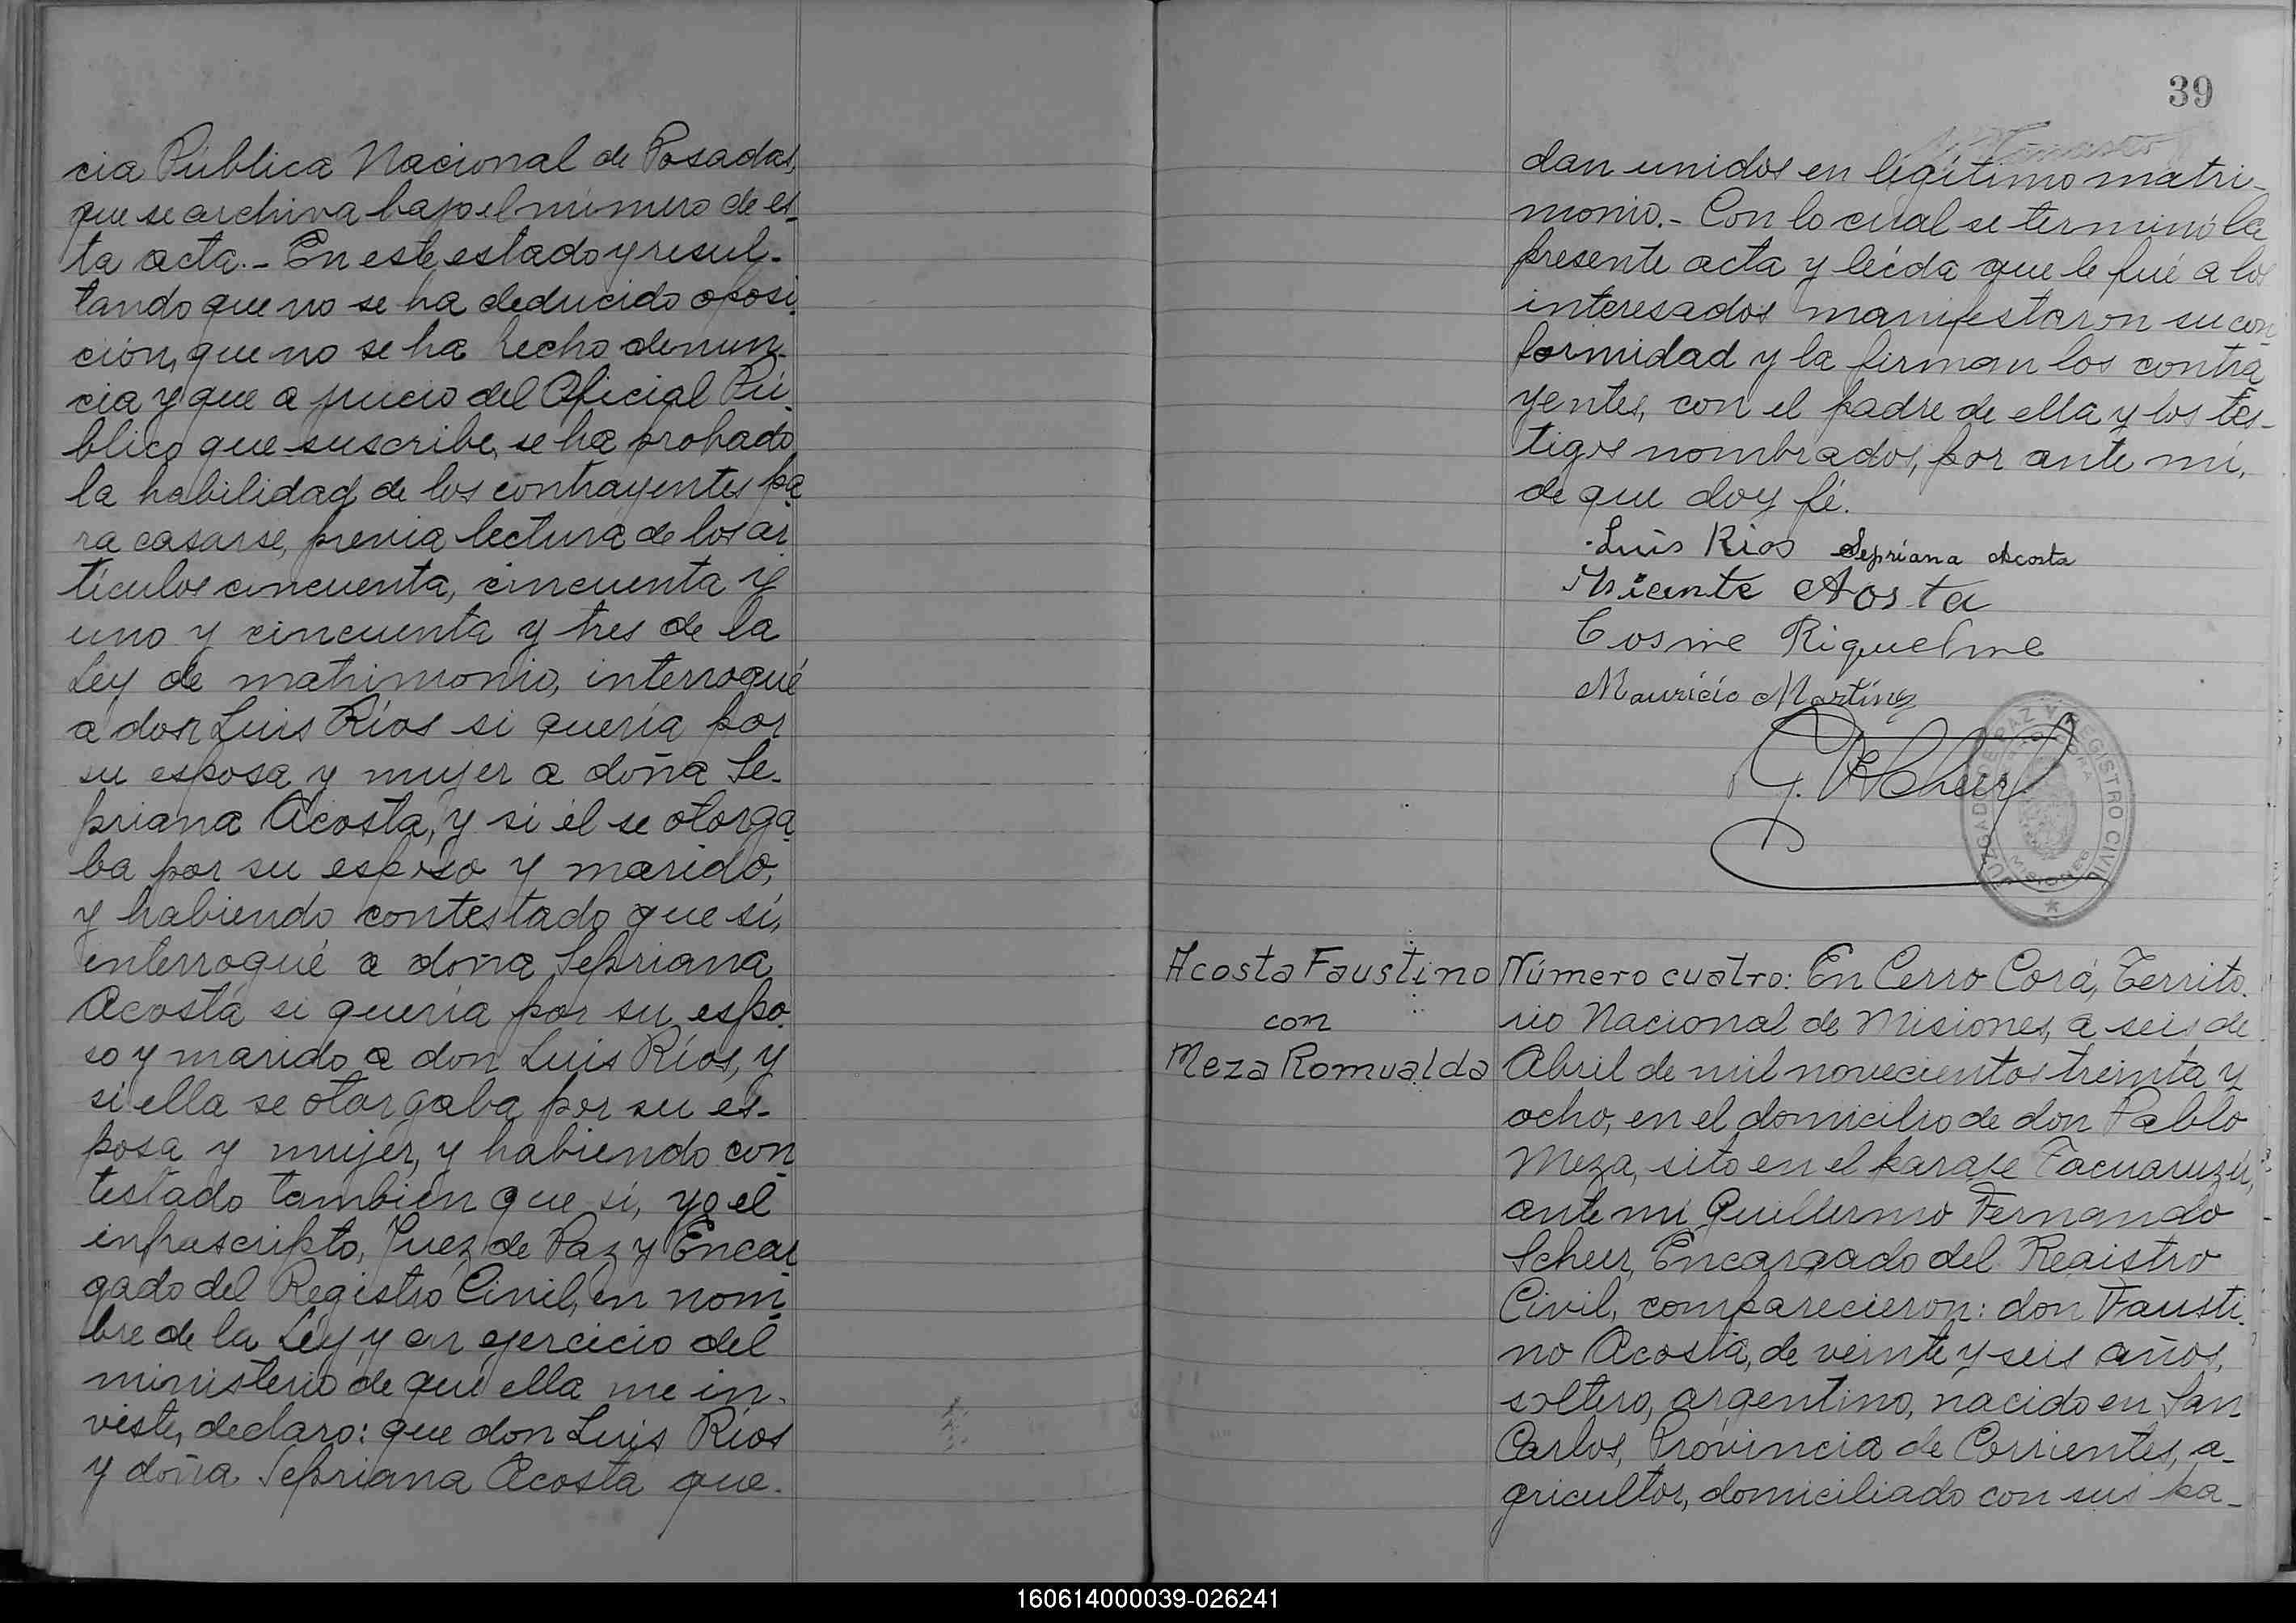 cia Pública Nacional de Posadas,
que se archiva bajo el número de es-
ta acta.- En este estado y resul-
tando que no se ha deducido oposi-
ción, que no se ha hecho denun-
cia y que a juicio del Oficial Pú-
blico que suscribe, se ha probado
la habilidad de los contrayentes pa-
ra casarse, previa lectura de los ar-
tículos cincuenta, cincuenta y
uno y cincuenta y tres de la
Ley de matrimonio, interrogué
a don Luis Ríos si quería por
su esposa y mujer a doña Se-
priana Acosta, y si él se otorga-
ba por su esposo y marido,
y habiendo contestado que sí,
interrogué a doña Sepriana
Acosta si quería por su espo-
so y marido a don Luis Ríos, y
si ella se otorgaba por su es-
posa y mujer, y habiendo con-
testado también que sí, yo el
infrascripto, Juez de Paz y Encar-
gado del Registro Civil, en nom-
bre de la Ley y en ejercicio del
ministerio de que ella me in-
viste, declaro: que don Luis Ríos
y doña Sepriana Acosta que-
39
dan unidos en legítimo matri-
monio.- Con lo cual se terminó la
presente acta y leída que le fué a los
interesados manifestaron su con-
formidad y la firman los contra-
yentes, con el padre de ella y los tes-
tigos nombrados, por ante mí,
de que doy fé.
Luis Rios Sepriana Acosta
Visente Aosta
Cosme Riquelme
Mauricio Martinez
G. F. Scheer
JUZGADO DE PAZ Y REGISTRO CIVIL
MISIONES
Acosta Faustino
con
Meza Romualda
Número cuatro: En Cerro Corá, Territo-
rio Nacional de Misiones, a seis de
Abril de mil novecientos treinta y
ocho, en el domicilio de don Pablo
Meza, sito en el paraje Tacuaruzú,
ante mí Guillermo Fernando
Scheer, Encargado del Registro
Civil, comparecieron: don Fausti-
no Acosta, de veinte y seis años,
soltero, argentino, nacido en San
Carlos, Provincia de Corrientes, a-
gricultor, domiciliado con sus pa-
160614000039-026241